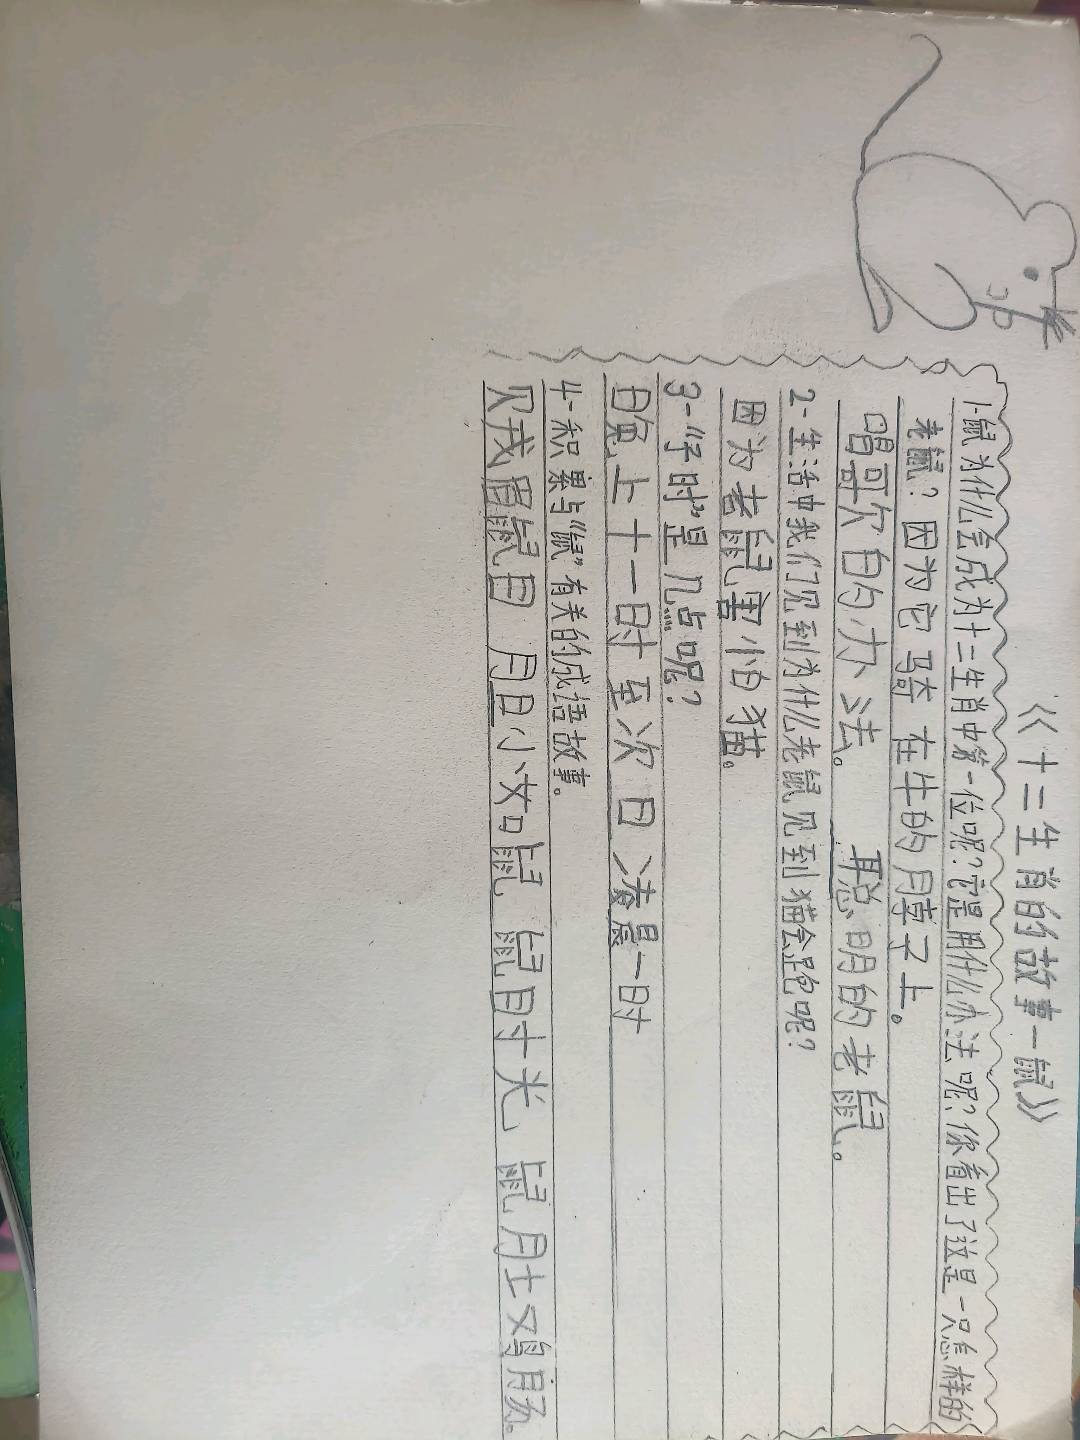 《十二生肖的故事一鼠》
1-鼠为什么会成为十二生肖中第一位呢?它是用什么办法呢?你看出了这是一只怎样的
老鼠? 因为它骑在牛的脖子上。
唱歌的办法。 聪明的老鼠。
2-生活中我们见到为什么老鼠见到猫会跑呢?
因为老鼠害怕猫。
3-"子时"是几点呢?
晚上十一时至次日凌晨一时
4-积累与"鼠"有关的成语故事。
贼眉鼠目 胆小如鼠 鼠目寸光 鼠肚鸡肠。